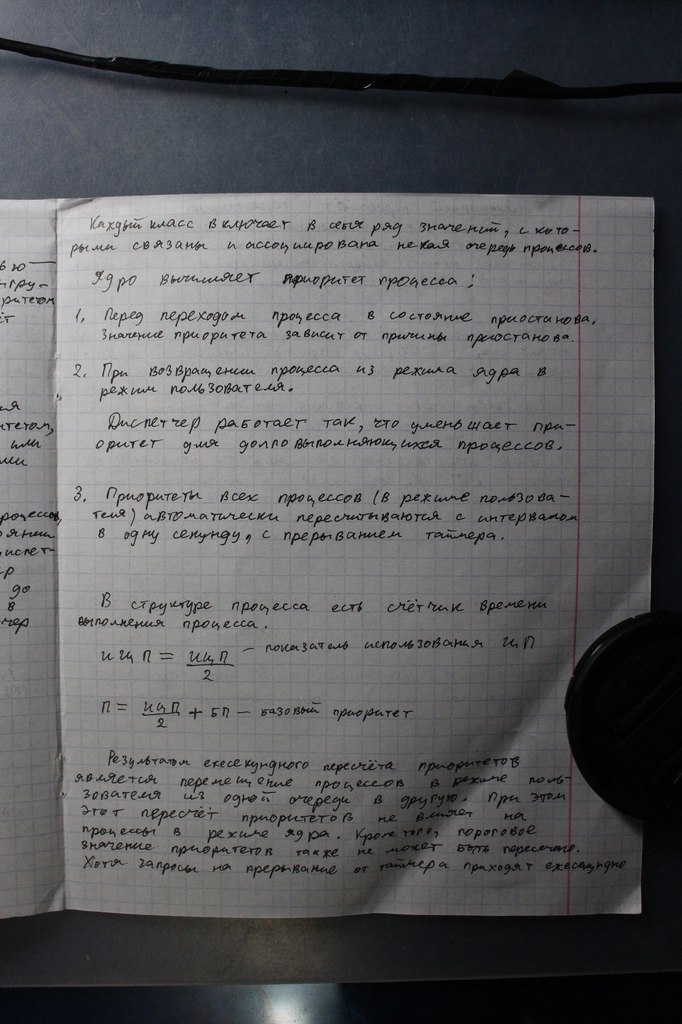 Каждый класс включает в себя ряд значений, с кото-
рыми связаны и ассоциирована некая очередь процессов.
Ядро вычисляет приоритет процесса:
1. Перед переходом процесса в состояние приостанова,
Значение приоритета зависит от причины приостанова.
2. При возвращении процесса из режима ядра в
режим пользователя.
Диспетчер работает так, что уменьшает при-
оритет для долговыполняющихся процессов.
3. Приоритеты всех процессов (в режиме пользова-
теля) автоматически пересчитываются с интервалом
в одну секунду, с прерыванием таймера.
В структуре процесса есть счётчик времени
выполнения процесса.
ИЦП = ИЦП/2 — показатель использования ЦП
П = ИЦП/2 + БП — базовый приоритет
Результатом ежесекундного пересчёта приоритетов
является перемещение процессов в режиме поль-
зователя из одной очереди в другую. При этом
этот пересчёт приоритетов не влияет на
процессы в режиме ядра. Кроме того, пороговое
значение приоритетов также не может быть пересечено.
Хотя запросы на прерывание от таймера приходят ежесекундно